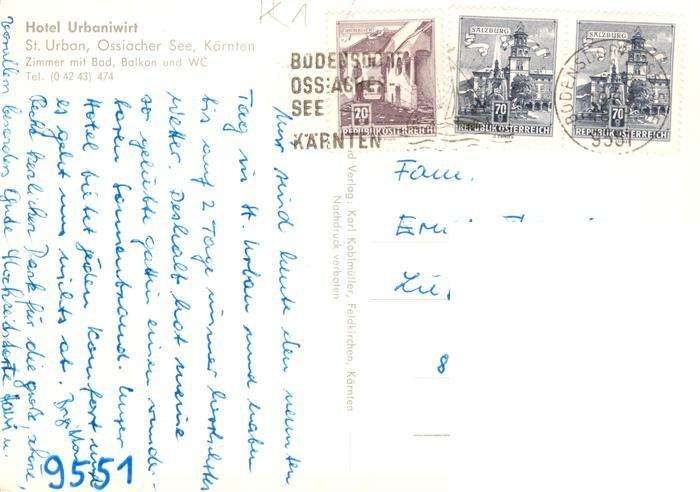 Hotel Urbaniwirt
St. Urban, Ossiacher See, Kärnten
Zimmer mit Bad, Balkon und WC
Tel. (0 42 43) 474
K1
BODENSDORF
OSSIACHER
SEE
KÄRNTEN
20
REPUBLIK ÖSTERREICH
SALZBURG
70
REPUBLIK ÖSTERREICH
SALZBURG
70
REPUBLIK ÖSTERREICH
BODENSDORF
9551
Wir sind heute den neunten
Tag in St. Urban und haben
bis auf 2 Tage immer herrliches
Wetter. Deshalb hat meine
so geliebte Gattin einen wunder-
baren Sonnenbrand. Unser
Hotel bietet jeden Komfort und
es geht uns nichts ab.
Recht herzlichen Dank für die große, schöne,
Gute
und Verlag: Karl Koblmüller, Feldkirchen, Kärnten
Nachdruck verboten
Fam.
8
9551